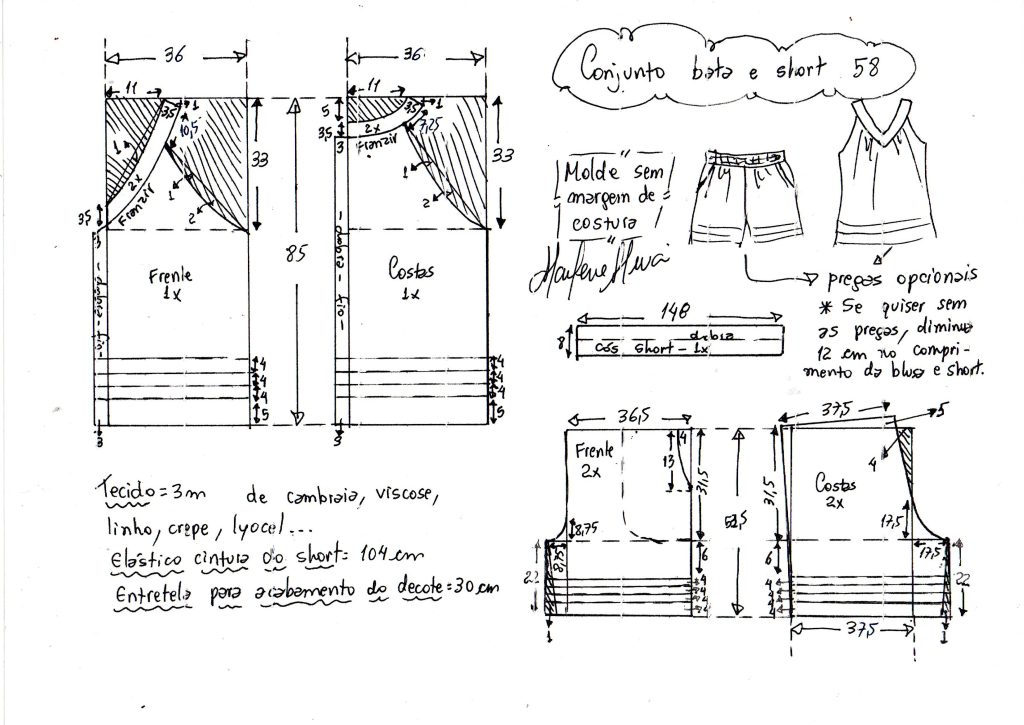 Conjunto bata e short 58
36
11
3,5
1
10,5
1
2x
Franzir
1
2
33
3,5
3
dobra - fio
Frente
1x
4
4
4
5
3
85
36
11
5
3,5
1
7,25
3,5
2x
Franzir
3
1
2
33
dobra - fio
Costas
1x
4
4
4
5
3
Molde sem
margem de
costura
Marlene Mukai
preças opcionais
* Se quiser sem
as preças, diminua
12 em no compri-
mento da blusa e short.
148
8
dobra
cós short - 1x
Tecido = 3m de cambraia, viscose,
linho, crepe, lyocel...
Elástico cintura do short = 104 cm
Entretela para acabamento do decote = 30 cm
36,5
Frente
2x
4
13
31,5
8,75
8,75
22
6
4
4
4
4
1
52,5
37,5
5
4
Costas
2x
31,5
17,5
17,5
6
4
4
4
4
22
1
37,5